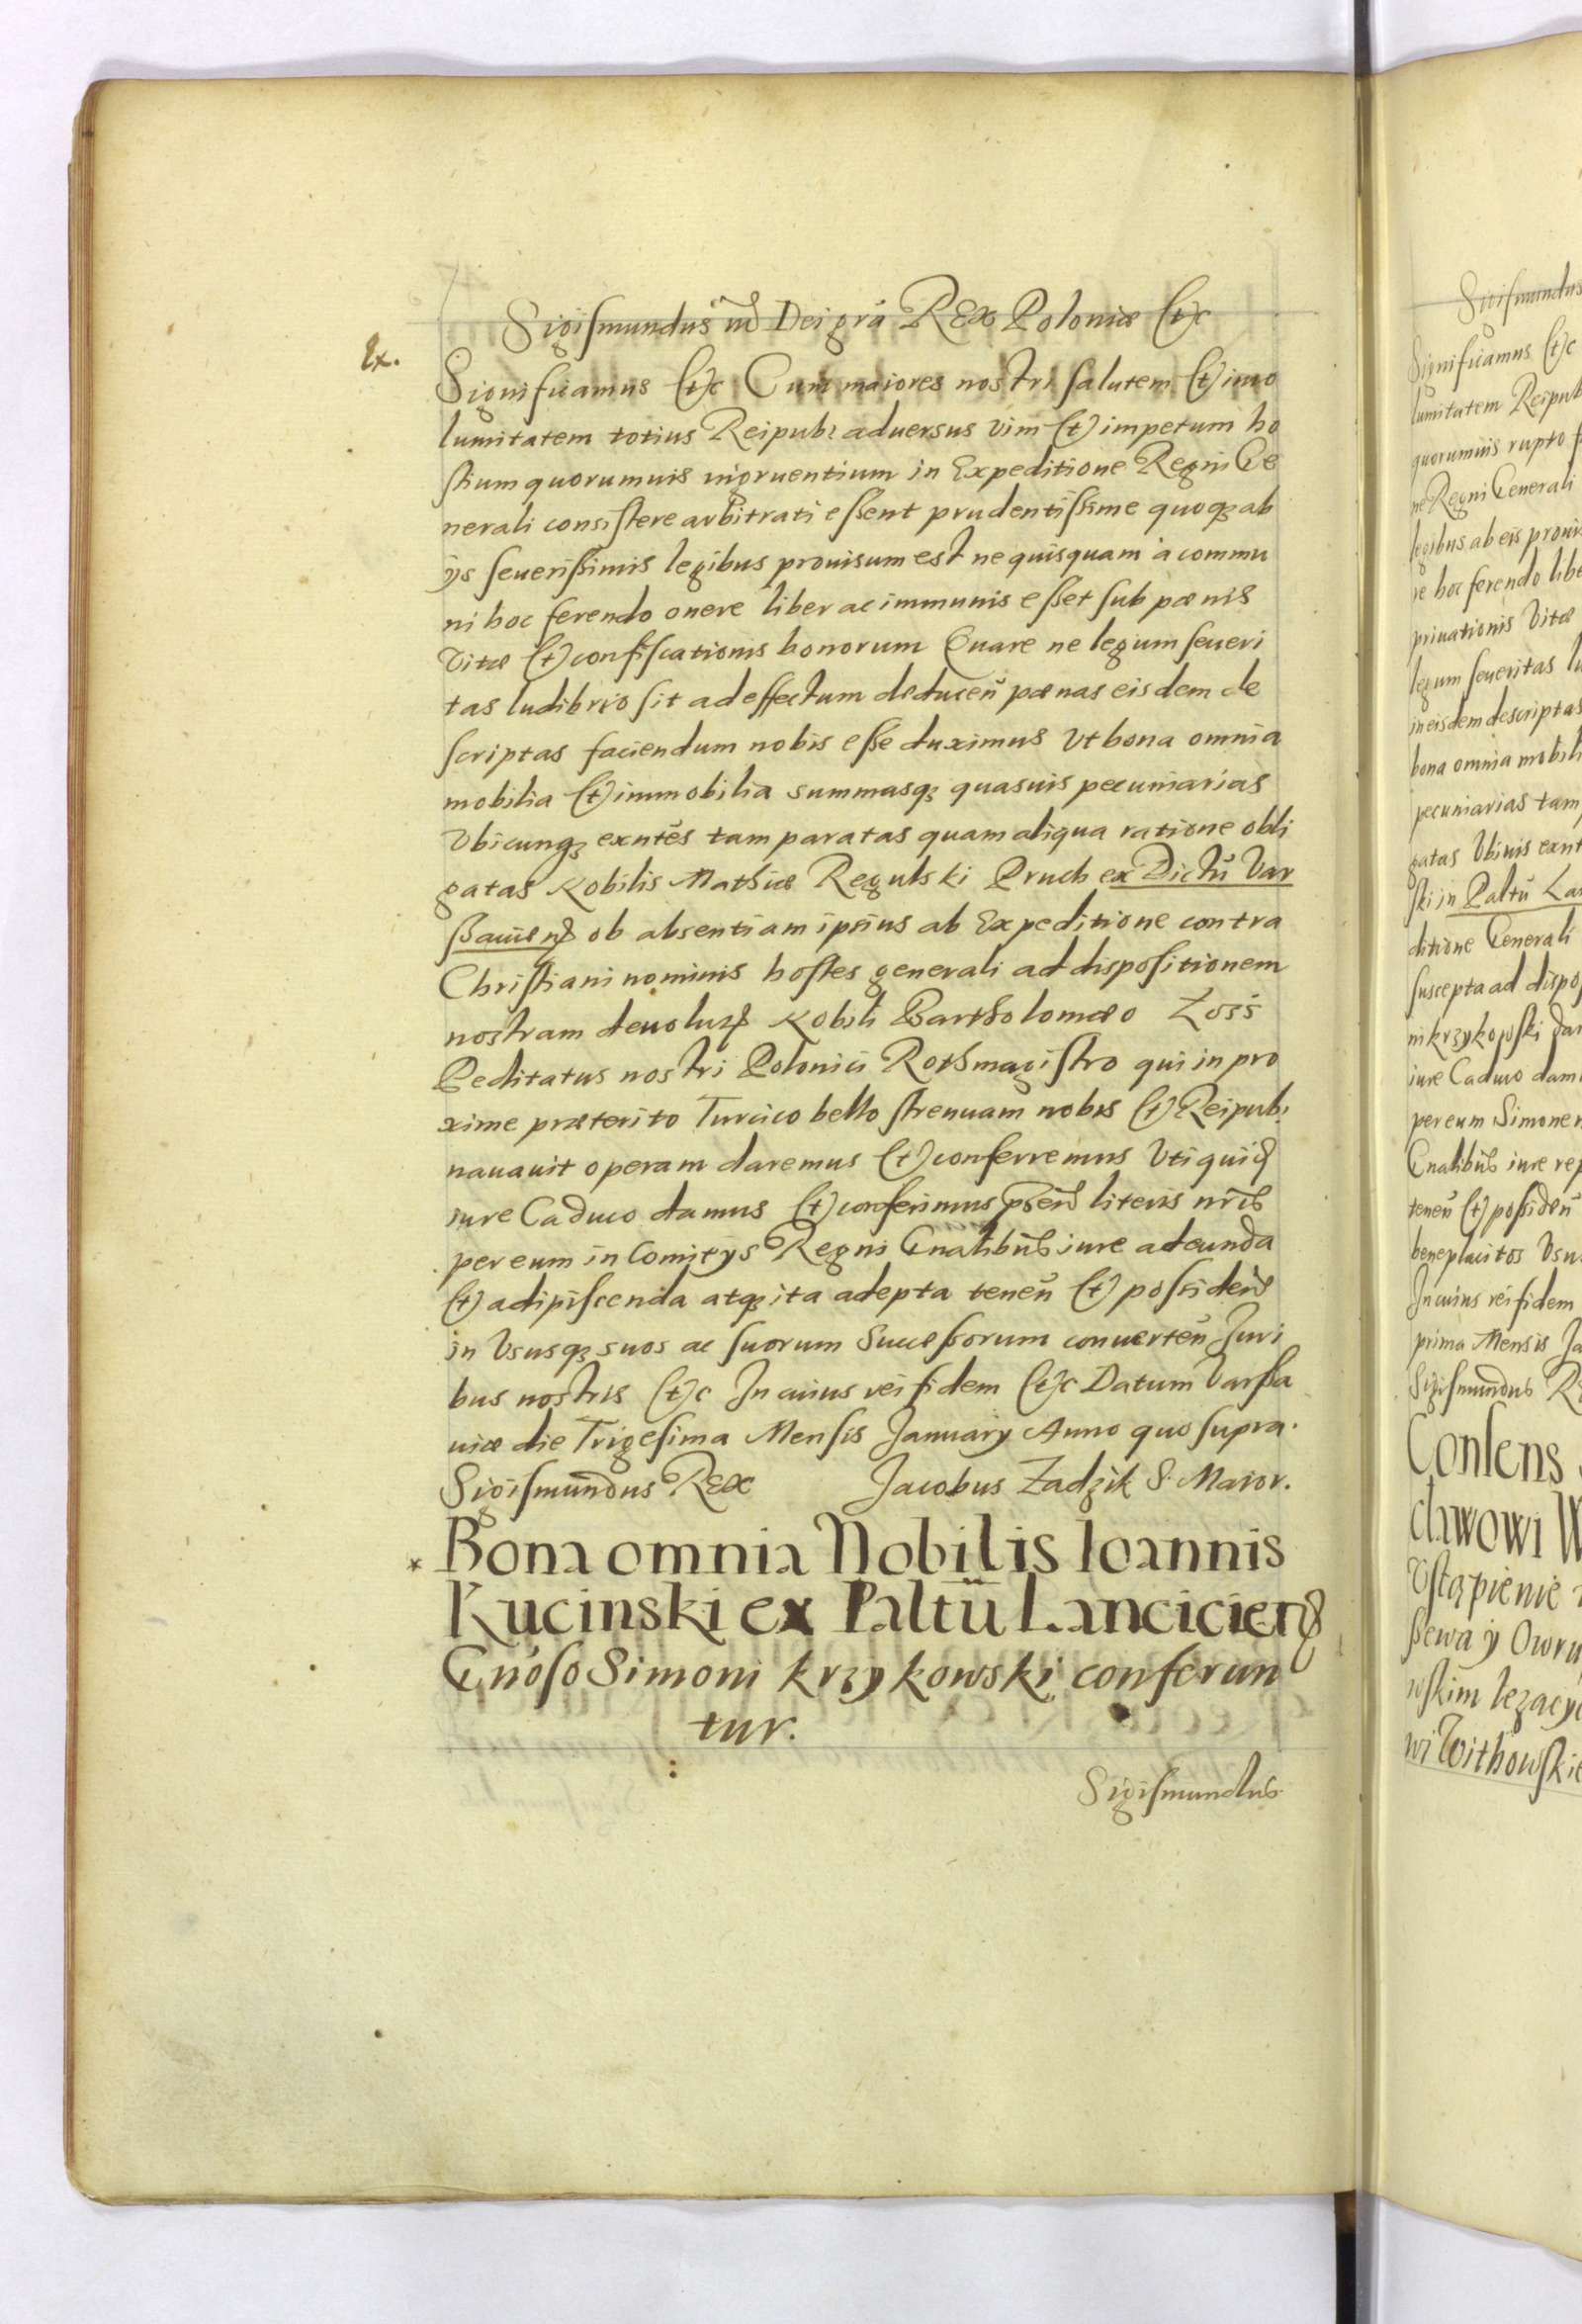 Sigismundus iii Dei grã REX Poloniæ (t)c
Ex.
Significamus (t)c Cum maiores nostri salutem (t) inco
lumitatem totius Reipub: aduersus vim (t) impetum ho
stium quorumuis ingruentium in Expeditione Regni Ge
nerali consistere arbitrati essent prudentissime quoqz ab
ijs seuerissimis legibus prouisum est ne quisquam à commu
ni hoc ferendo onere liber ac immunis esset sub pænis
Vitæ (t) confiscationis bonorum Quare ne legum seueri
tas ludibrio sit ad effectum deducen̄ pænas eisdem de
scriptas faciendum nobis esse duximus Vt bona omnia
mobilia (t) immobilia summasqz quasuis pecuniarias
Vbicunqz exntēs tam paratas quam aliqua ratione obli
gatas Nobilis Mathiæ Regulski Pruch ex Dictū Var
ßauien̄ ob absentiam ipsius ab Expeditione contra
Christiani nominis hostes generali ad dispositionem
nostram deuoluz Nobili Bartholomæo Zoss
Peditatus nostri Polonici Rothmagistro qui in pro
xime præterito Turcico bello strenuam nobis (t) Reipub:
nauauit operam daremus (t) conferremus Vti quid
iure Caduco damus (t) conferimus pñen literis nris
per eum in Comitijs Regni Gnalibus iure adeunda
(t) adipiscenda atqz ita adepta tenen̄ (t) possiden
in Vsusqz suos ac suorum Successorum conuerten̄ Juri
bus nostris (t)c In cuius rei fidem (t)c Datum Varßa
uiæ die Trigesima Mensis January Anno quo supra.
Sigismundus REX Jacobus Zadzik S. Maior.
* Bona omnia Nobilis Ioannis
Kucinski ex Paltū Lancicien
Gnoso Simoni Krzykowski conferun
tur.
Sigismundus
Sigismundus
Significamus (t)c
lumitatem Reipub
quorumuis rupto
ne Regni Generali
legibus ab eis proui
re hoc ferendo libe
priuationis Vitæ
legum seueritas lu
in eisdem descriptas
bona omnia mobili
pecuniarias tam
gatas Vbiuis exnt
ski in Paltū Lan
ditione Generali
suscepta ad dispos
ni Krzykowski
iure Caduco dam
per eum Simonem
Gnalibus iure rep
tenen̄ (t) possiden̄
beneplacitos Vsu
In cuius rei fidem
prima Mensis Ja
Sigismundus R
Consens
cławowi W
Vstąpienie
ßewa y Owru
wskim lezacyc
wi Woithowskie